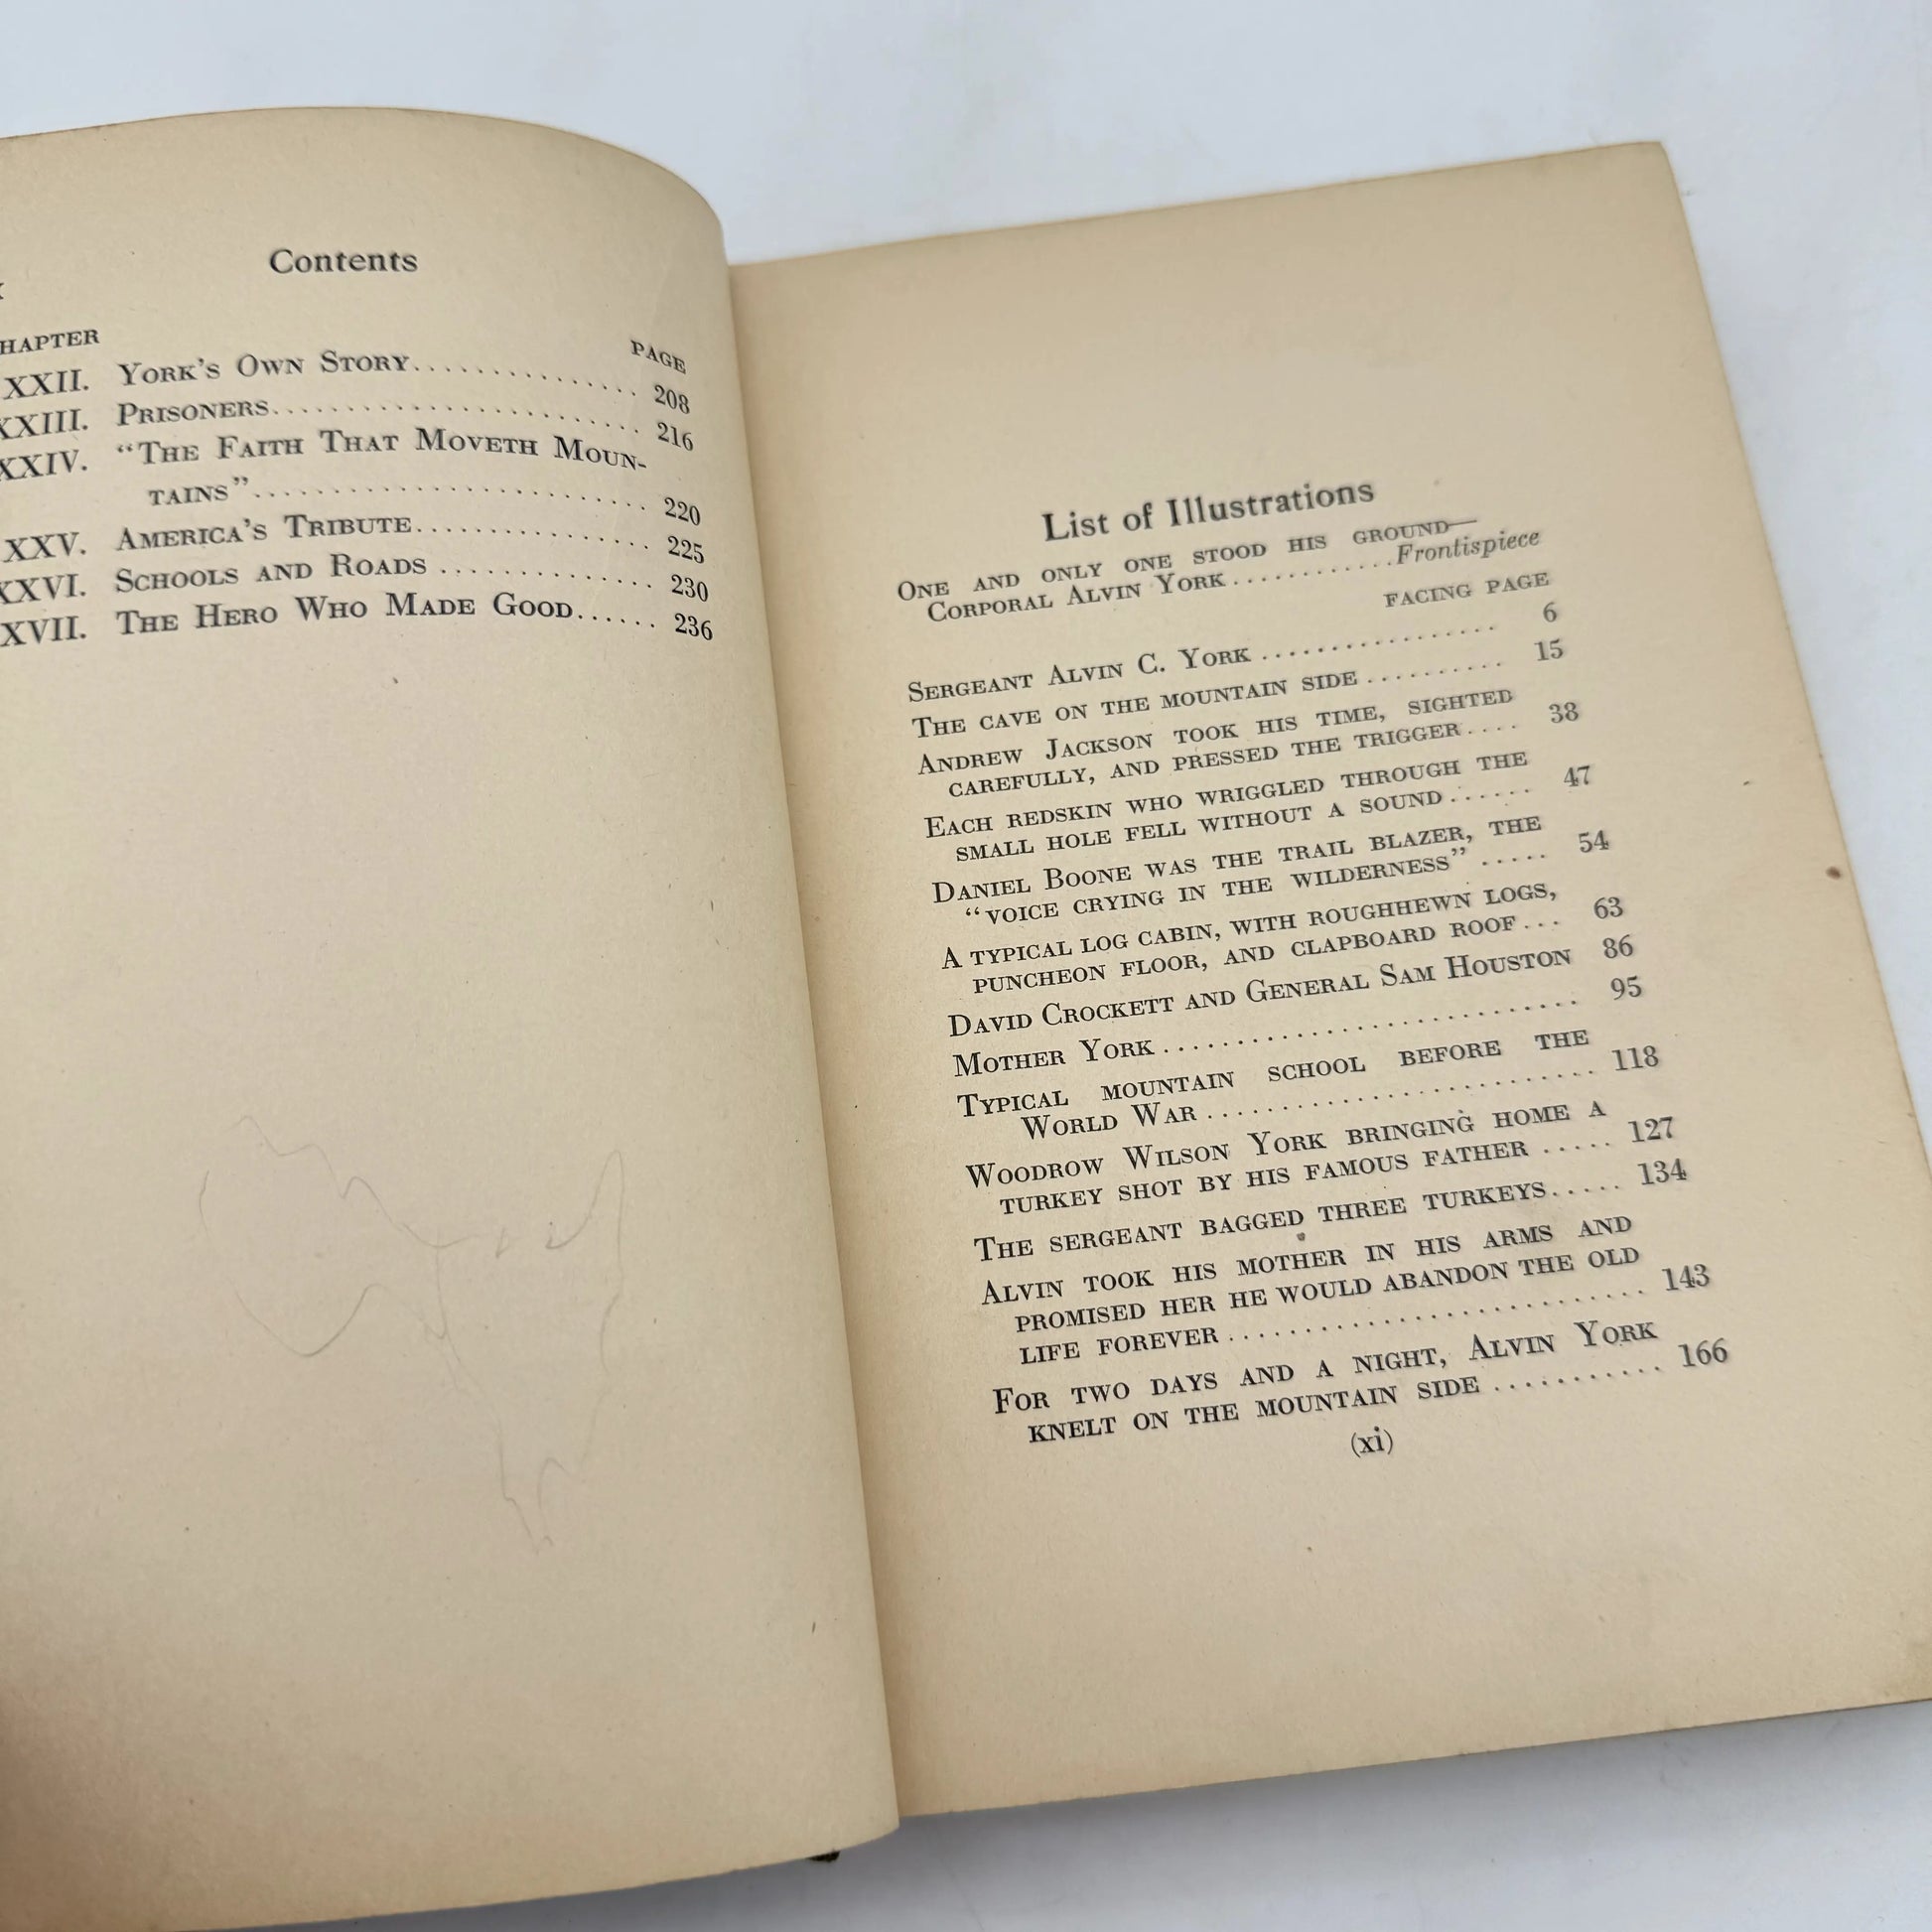 Contents
CHAPTER PAGE
XXII. York's Own Story............... 208
XXIII. Prisoners........................ 216
XXIV. "The Faith That Moveth Moun-
tains".......................... 220
XXV. America's Tribute............... 225
XXVI. Schools and Roads .............. 230
XXVII. The Hero Who Made Good...... 236
List of Illustrations
One and only one stood his ground—
Corporal Alvin York............Frontispiece
FACING PAGE
Sergeant Alvin C. York ................ 6
The cave on the mountain side .......... 15
Andrew Jackson took his time, sighted
carefully, and pressed the trigger.... 38
Each redskin who wriggled through the
small hole fell without a sound ...... 47
Daniel Boone was the trail blazer, the
"voice crying in the wilderness" ..... 54
A typical log cabin, with roughhewn logs,
puncheon floor, and clapboard roof... 63
David Crockett and General Sam Houston 86
Mother York ............................ 95
Typical mountain school before the
World War .......................... 118
Woodrow Wilson York bringing home a
turkey shot by his famous father ..... 127
The sergeant bagged three turkeys..... 134
Alvin took his mother in his arms and
promised her he would abandon the old
life forever ............................ 143
For two days and a night, Alvin York
knelt on the mountain side ........... 166
(xi)